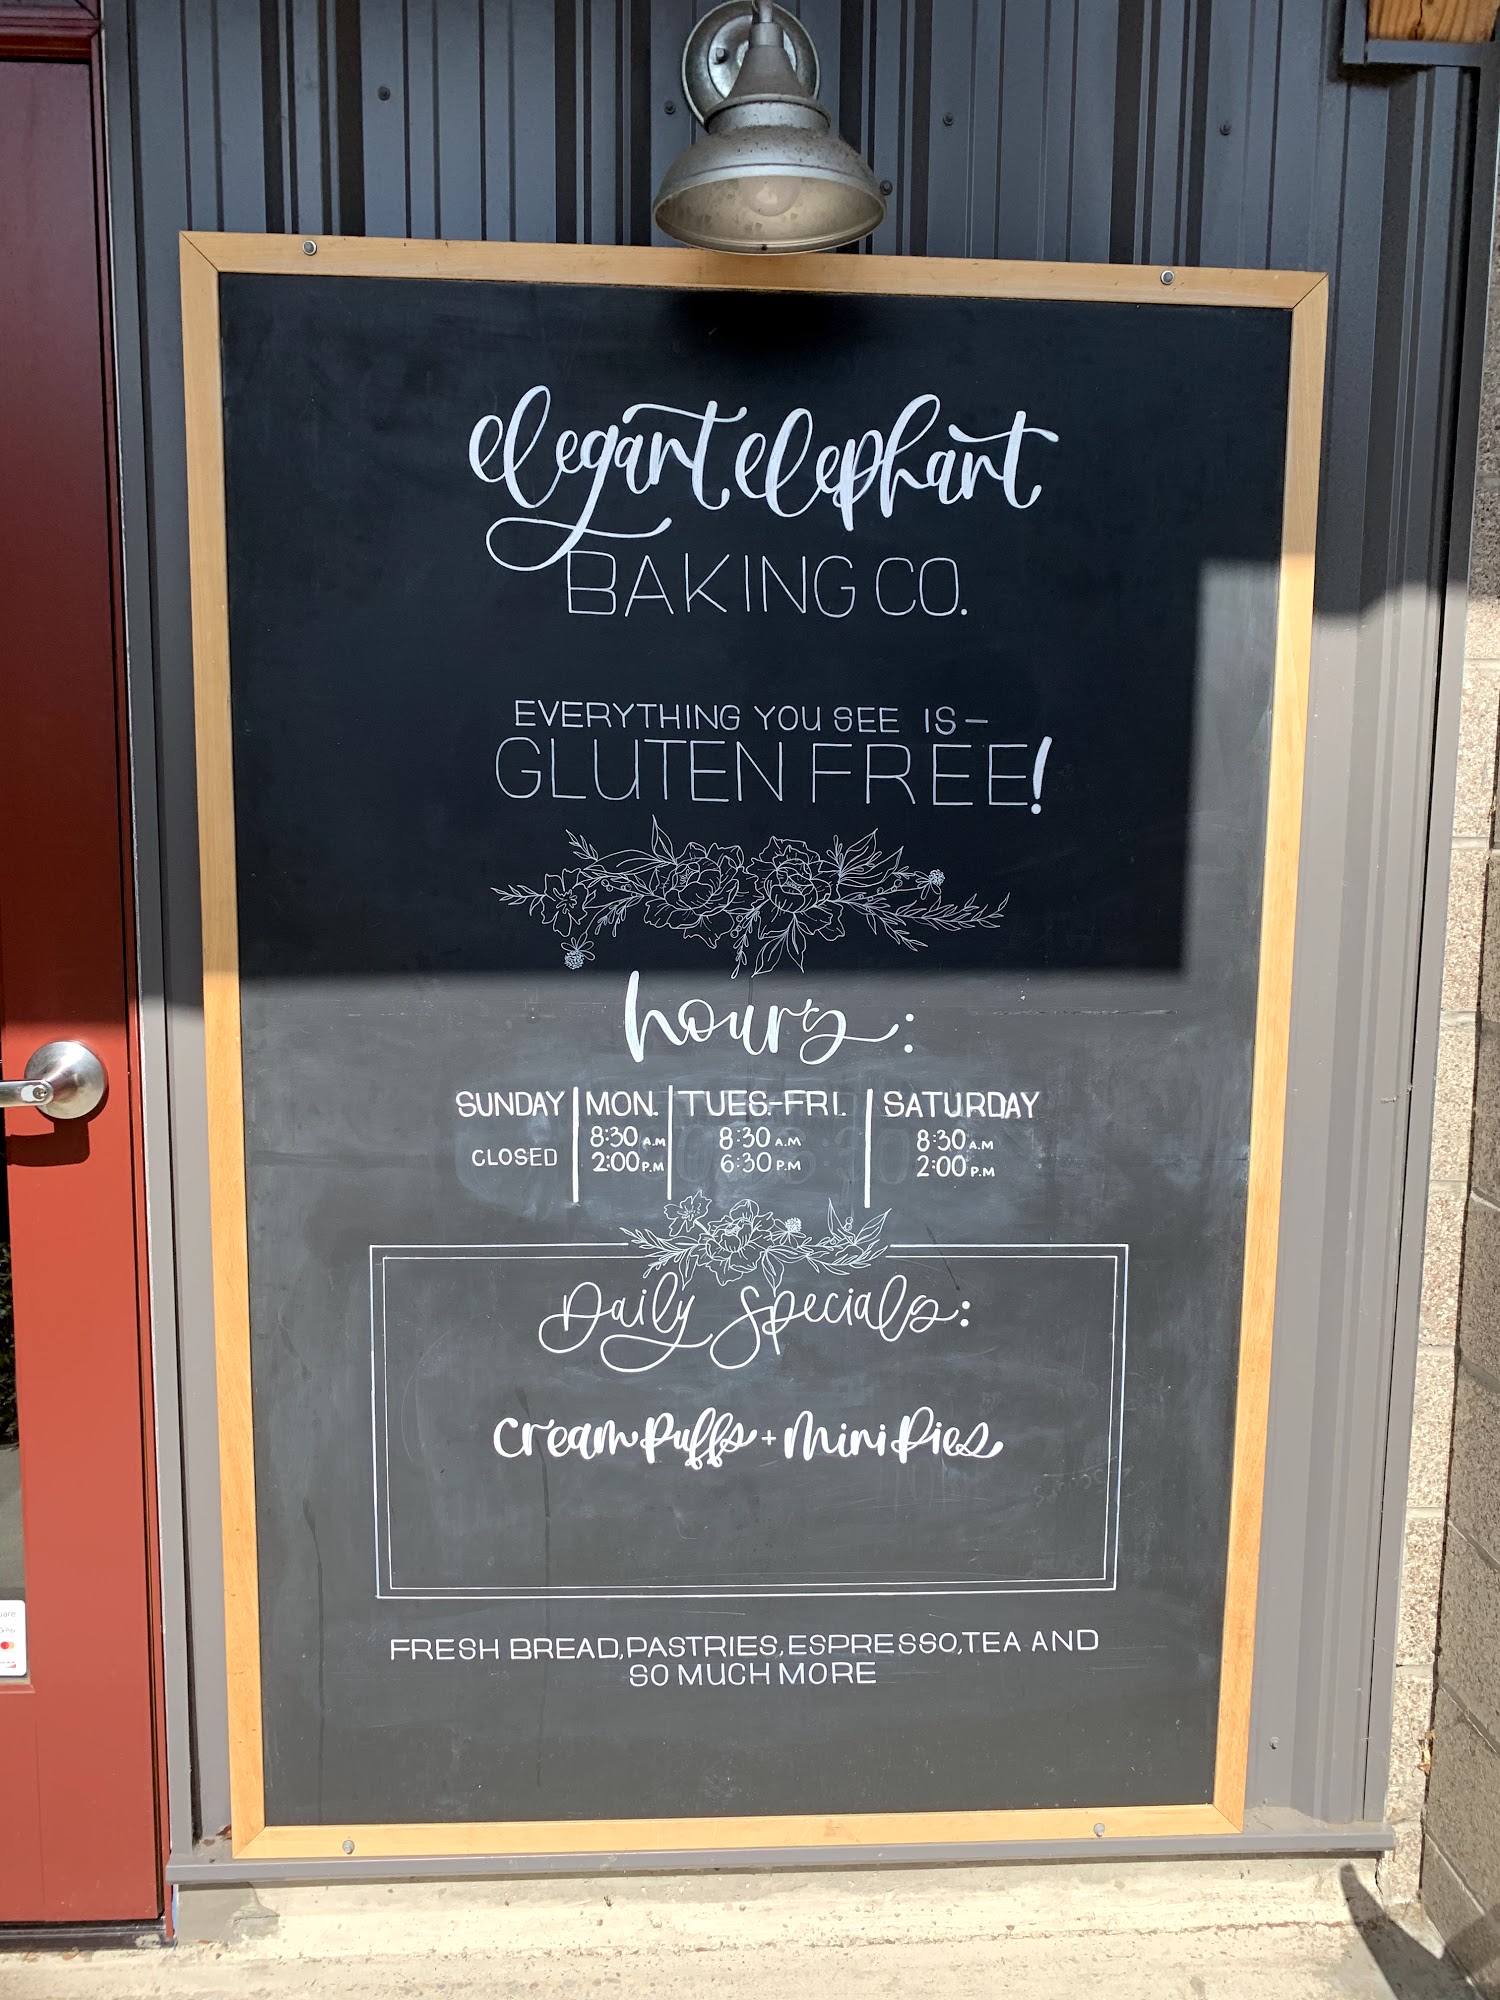 elegant elephant
BAKING CO.
EVERYTHING YOU SEE IS-
GLUTEN FREE!
hours:
SUNDAY | MON. | TUES.-FRI. | SATURDAY
CLOSED
8:30 A.M
2:00 P.M
8:30 A.M
6:30 P.M
8:30 A.M
2:00 P.M
Daily Specials:
cream puffs + mini pies
FRESH BREAD, PASTRIES, ESPRESSO, TEA AND
SO MUCH MORE